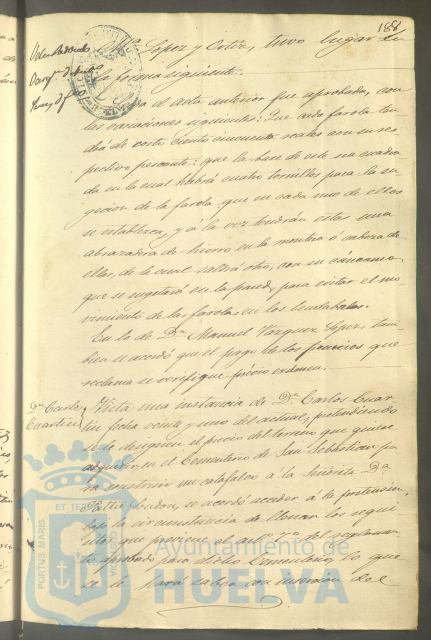 188
López y Ortiz, tuvo lugar en
la forma siguiente.
el acta anterior fue aprobada, con
las variaciones siguientes: Que cada farola ten-
drá de coste ciento cincuenta reales con su res-
pectivo pescante: que la base de este sea cuadra-
da en la cual habrá cuatro tornillos para la su-
gecion de la farola, que en cada uno de ellos
se establezca, y á la vez tendrán estas una
abrazadera de hierro en la montera ó cabeza de
ellas, de la cual saldrá otro, con su cáncamo,
que se sugetará en la pared, para evitar el mo-
vimiento de la farola en los bendabales.
En lo de Dn. Manuel Vazquez Lopez, tam-
bien se acordó que el pago de los que
reclama se verifique prévio exámen.
Dn. Carlos
Vista una instancia de Dn. Carlos
fecha veinte y uno del actual, pretendiendo
se le designen el precio del terreno que quiere
adquirir en el Cementerio de San Sebastian pa-
ra construir un catafalco á la Señorita Da.
se acordó acceder á la pretension,
bajo la circunstancia de llenar los requi-
sitos que previene el art. 7º del reglamen-
to aprobado para dicho Cementerio, lo que
se le hará saber con insercion de el
PORTUS MARIS ET TERRAE
Ayuntamiento de
HUELVA